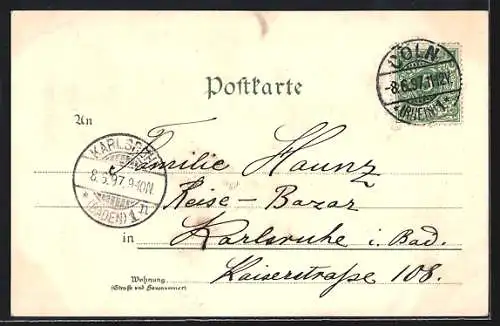 CÖLN
-8.6.97.11-12V.
*(RHEIN)1*
Postkarte
An
KARLSRUHE
8.6.97.9-10N.
*(BADEN)1n
Familie Haunz
Reise-Bazar
in Karlsruhe i. Bad.
Wohnung. Kaiserstraße 108.
(Straße und Hausnummer)